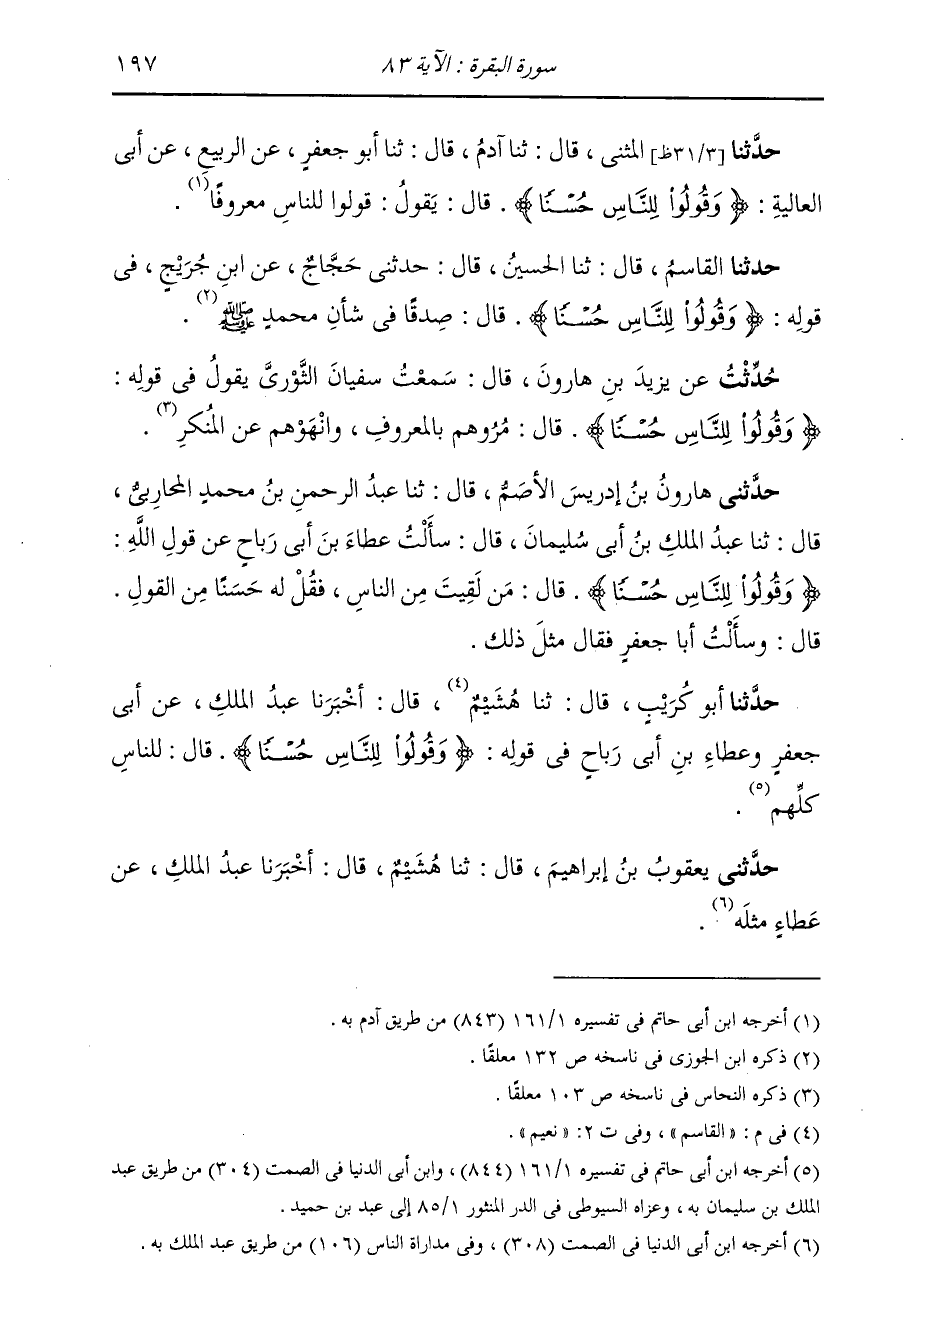 سورة البقرة : الآية ٨٣ ١٩٧
حدَّثنا [٣١/٣ظ] المثنى ، قال : ثنا آدمُ ، قال : ثنا أبو جعفرٍ ، عن الربيعِ ، عن أبى
العاليةِ : ﴿ وَقُولُواْ لِلنَّاسِ حُسْنًا ﴾ . قال : يَقولُ : قولوا للناسِ معروفًا(١) .
حدثنا القاسمُ ، قال : ثنا الحسينُ ، قال : حدثنى حَجَّاجٌ ، عن ابنِ جُرَيْجٍ ، فى
قولِه : ﴿ وَقُولُواْ لِلنَّاسِ حُسْنًا ﴾ . قال : صِدقًا فى شأنِ محمدٍ ﷺ(٢) .
حُدِّثْتُ عن يزيدَ بنِ هارونَ ، قال : سَمعْتُ سفيانَ الثَّوْرىَّ يقولُ فى قولِه :
﴿ وَقُولُواْ لِلنَّاسِ حُسْنًا ﴾ . قال : مُرُوهم بالمعروفِ ، وانْهَوْهم عن المُنكرِ(٣) .
حدَّثنى هارونُ بنُ إدريسَ الأصَمُّ ، قال : ثنا عبدُ الرحمنِ بنُ محمدٍ المحاربىُّ ،
قال : ثنا عبدُ الملكِ بنُ أبى سُليمانَ ، قال : سأَلْتُ عطاءَ بنَ أبى رَباحٍ عن قولِ اللَّهِ :
﴿ وَقُولُواْ لِلنَّاسِ حُسْنًا ﴾ . قال : مَن لَقِيتَ مِن الناسِ ، فقُلْ له حَسَنًا مِن القولِ .
قال : وسأَلْتُ أبا جعفرٍ فقال مثلَ ذلك .
حدَّثنا أبو كُرَيْبٍ ، قال : ثنا هُشَيْمٌ(٤) ، قال : أخْبَرَنا عبدُ الملكِ ، عن أبى
جعفرٍ وعطاءِ بنِ أبى رَباحٍ فى قولِه : ﴿ وَقُولُواْ لِلنَّاسِ حُسْنًا ﴾ . قال : للناسِ
كلِّهم(٥) .
حدَّثنى يعقوبُ بنُ إبراهيمَ ، قال : ثنا هُشَيْمٌ ، قال : أخْبَرَنا عبدُ الملكِ ، عن
عَطاءٍ مثلَه(٦) .
(١) أخرجه ابن أبى حاتم فى تفسيره ١٦١/١ (٨٤٣) من طريق آدم به .
(٢) ذكره ابن الجوزى فى ناسخه ص ١٣٢ معلقًا .
(٣) ذكره النحاس فى ناسخه ص ١٠٣ معلقًا .
(٤) فى م : «القاسم» ، وفى ت ٢: «نعيم» .
(٥) أخرجه ابن أبى حاتم فى تفسيره ١٦١/١ (٨٤٤) ، وابن أبى الدنيا فى الصمت (٣٠٤) من طريق عبد
الملك بن سليمان به ، وعزاه السيوطى فى الدر المنثور ٨٥/١ إلى عبد بن حميد .
(٦) أخرجه ابن أبى الدنيا فى الصمت (٣٠٨) ، وفى مداراة الناس (١٠٦) من طريق عبد الملك به .